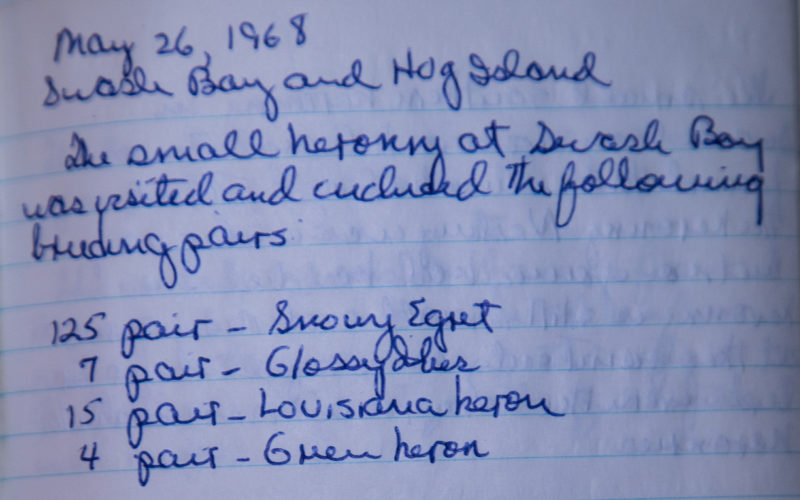 May 26, 1968
Swash Bay and Hog Island
The small heronry at Swash Bay
was visited and included the following
breeding pairs
125 pair - Snowy Egret
7 pair - Glossy Ibis
15 pair - Louisiana heron
4 pair - Green heron